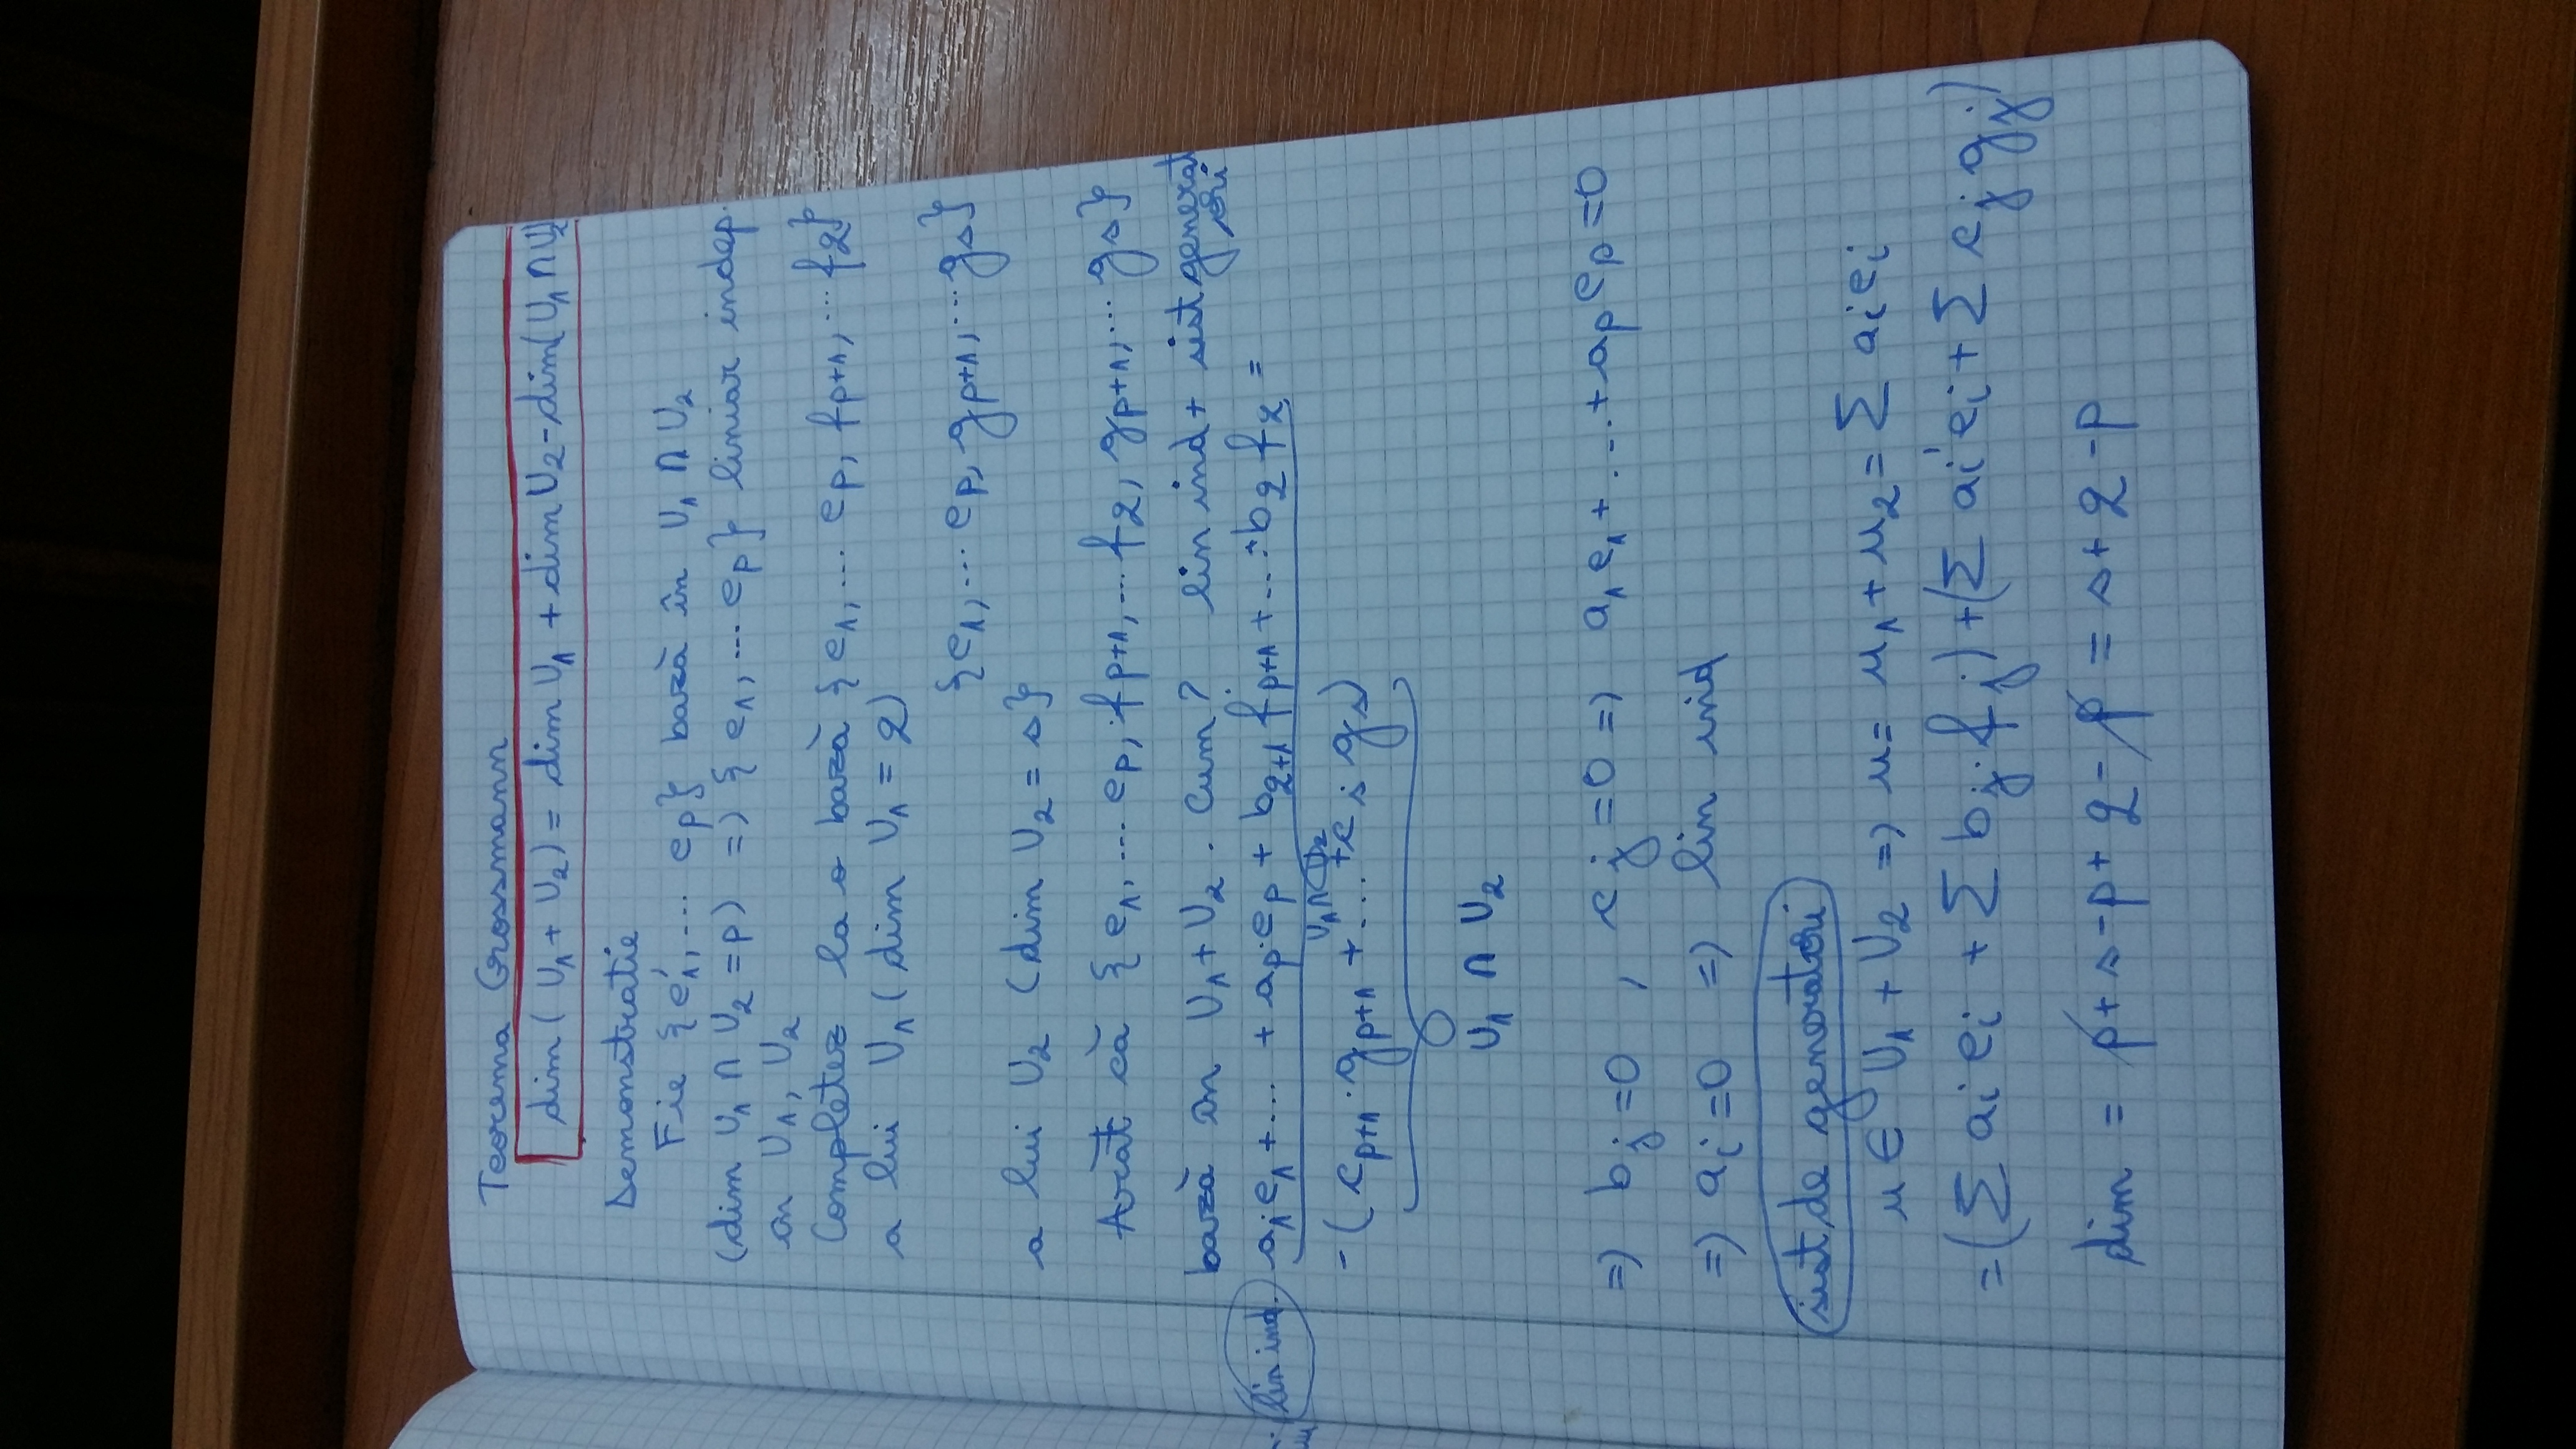 Teorema Grossmann
dim (U₁ + U₂) = dim U₁ + dim U₂ - dim(U₁ ∩ U₂
Demonstratie
Fie {e₁, ... eₚ} bază în U₁ ∩ U₂
(dim U₁ ∩ U₂ = p) => {e₁, ... eₚ} liniar indep.
în U₁, U₂
Completez la o bază {e₁, ... eₚ, fₚ₊₁, ... f_q}
a lui U₁ (dim U₁ = q)
{e₁, ... eₚ, gₚ₊₁, ... gₛ}
a lui U₂ (dim U₂ = s}
Arăt că {e₁, ... eₚ, fₚ₊₁, ... f_q, gₚ₊₁, ... gₛ}
bază în U₁ + U₂. Cum? lin ind + sist generatori
lin ind. a₁e₁ + ... + aₚ·eₚ + b_q₊₁ fₚ₊₁ + ... + b_q f_q =
U₁ ∩ U₂
-(cₚ₊₁·gₚ₊₁ + ... + cₛ gₛ)
U₁ ∩ U₂
=> bⱼ = 0, cⱼ = 0 => a₁e₁ + ... + aₚeₚ = 0
=> aᵢ = 0 => lin ind
sist. de generatori
u ∈ U₁ + U₂ => u = u₁ + u₂ = Σ aᵢeᵢ
= (Σ aᵢeᵢ + Σ bⱼ·fⱼ) + (Σ aᵢ'eᵢ + Σ cⱼ gⱼ)
dim = p + s - p + q - p = s + q - p